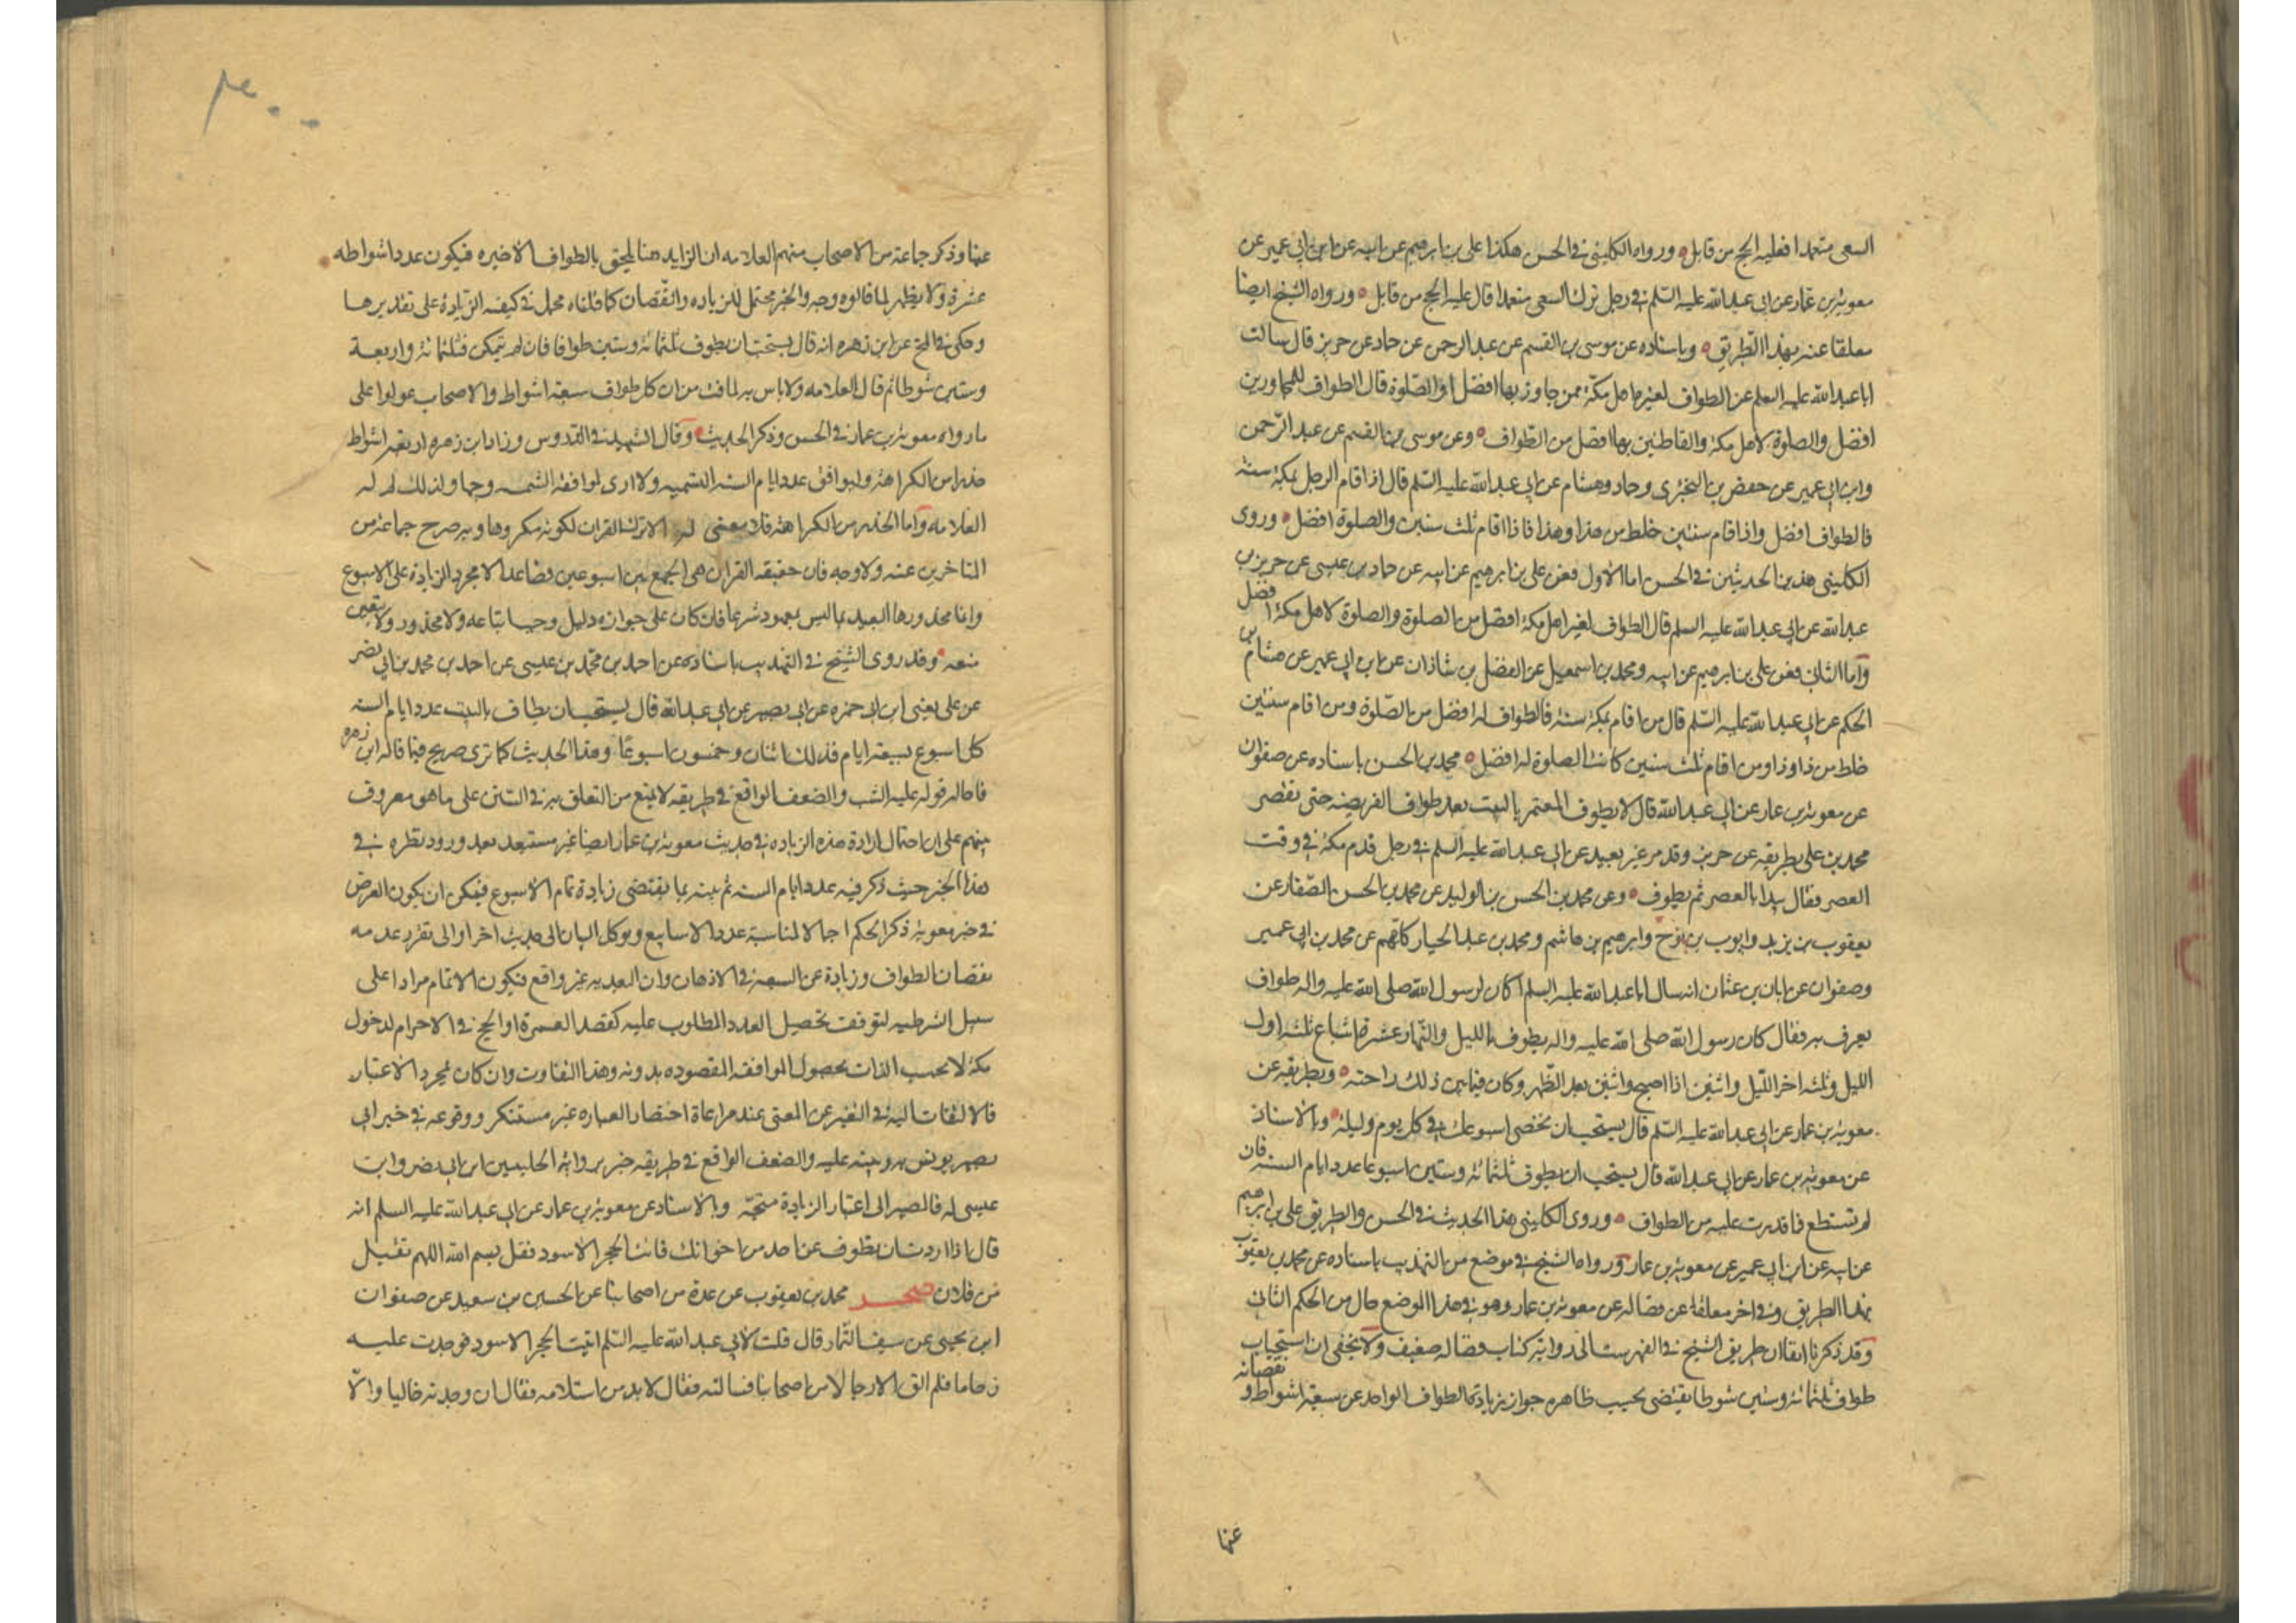 السعى متعمدا فعليه الحج من قابل ورواه الكلينى فى الحسن هكذا على بن ابرهيم عن ابيه عن ابن ابى عمير عن
معوية بن عمار عن ابى عبد الله عليه السلم فى رجل ترك السعى متعمدا قال عليه الحج من قابل ورواه الشيخ ايضا
معلقا عنه بهذا الطريق وباسناده عن موسى بن القسم عن عبد الرحمن عن حماد عن حريز قال سالت
ابا عبد الله عليه السلم عن الطواف لغير اهل مكة ممن جاور بها افضل او الصلوة قال الطواف للمجاورين
افضل والصلوة لاهل مكة والقاطنين بها افضل من الطواف وعن موسى بن القسم عن عبد الرحمن
وابن ابى عمير عن حفص بن البخترى وحماد وهشام عن ابى عبد الله عليه السلم قال اذا قام الرجل بمكة سنة
فالطواف افضل واذا قام سنتين خلط من هذا وهذا فاذا اقام ثلث سنين والصلوة افضل وروى
الكلينى هذين الحديثين فى الحسن اما الاول فعن على بن ابرهيم عن ابيه عن حماد بن عيسى عن حريز بن
عبد الله عن ابى عبد الله عليه السلم قال الطواف لغير اهل مكة افضل من الصلوة والصلوة لاهل مكة افضل
واما الثانى فعن على بن ابرهيم عن ابيه ومحمد بن اسمعيل عن الفضل بن شاذان عن ابن ابى عمير عن هشام بن
الحكم عن ابى عبد الله عليه السلم قال من اقام بمكة سنة فالطواف له افضل من الصلوة ومن اقام سنتين
خلط من ذا وذا ومن اقام ثلث سنين كانت الصلوة له افضل محمد بن الحسن باسناده عن صفوان
عن معوية بن عمار عن ابى عبد الله قال لا يطوف المعتمر بالبيت بعد طواف الفريضه حتى يقصر
محمد بن على بطريقه عن حريز وقد مر غير بعيد عن ابى عبد الله عليه السلم فى رجل قدم مكة فى وقت
العصر فقال يبدا بالعصر ثم يطوف وعن محمد بن الحسن بن الوليد عن محمد بن الحسن الصفار عن
يعقوب بن يزيد وايوب بن نوح وابرهيم بن هاشم ومحمد بن عبد الجبار كلهم عن محمد بن ابى عمير
وصفوان عن ابان بن عثمان انه سال ابا عبد الله عليه السلم اكان لرسول الله صلى الله عليه واله طواف
يعرف به فقال كان رسول الله صلى الله عليه واله يطوف بالليل والنهار عشرة اسباع ثلثه اول
الليل وثلثه اخر الليل واثنين اذا اصبح واثنين بعد الظهر وكان فيما بين ذلك راحته وبطريقه عن
معوية بن عمار عن ابى عبد الله عليه السلم قال يستحب ان تحصى اسبوعك فى كل يوم وليلة وبالاسناد
عن معوية بن عمار عن ابى عبد الله قال يستحب ان يطوف ثلثمائة وستين اسبوعا عدد ايام السنه فان
لم تستطع فما قدرت عليه من الطواف وروى الكلينى هذا الحديث فى الحسن والطريق على بن ابرهيم
عن ابيه عن ابن ابى عمير عن معوية بن عمار ورواه الشيخ فى موضع من التهذيب باسناده عن محمد بن يعقوب
بهذا الطريق وفى اخر معلقا عن فضاله عن معوية بن عمار وهو فى هذا الموضع خال من الحكم الثانى
وقد ذكرنا انفا ان طريق الشيخ فى الفهرست الى رواية كتاب فضاله ضعيف ولا يخفى ان استحباب
طواف ثلثمائة وستين شوطا يقتضى بحسب ظاهره جواز زيادة الطواف الواحد عن سبعة اشواط ونقصانه
عنها
عنها وذكر جماعة من الاصحاب منهم العلامه ان الزايد هنا يلحق بالطواف الاخيره فيكون عدد اشواطه
عشرة ولا يظهر لما قالوه وجه والخبر محتمل للزياده والنقصان كما قلناه مجمل فى كيفيه الزيادة على تقديرها
وحكى فى المخ عن ابن زهره انه قال يستحب ان يطوف ثلثمائة وستين طوافا فان لم يتمكن فثلثمائة واربعة
وستين شوطا ثم قال العلامه ولا باس به لما فت من ان كل طواف سبعة اشواط والاصحاب عولوا على
ما رواه معوية بن عمار فى الحسن وذكر الحديث وقال الشهيد فى الدروس وزاد ابن زهره اربعة اشواط
حذرا من الكراهة وليوافق عدد ايام السنه الشمسيه ولا ارى لموافقة الشمسيه وجها ولذلك لم
العلامه واما الحذر من الكراهة فلا معنى له الا ترك القران لكونه مكروها وبه صرح جماعة من
المتاخرين عنه ولا وجه فان حقيقه القران هى الجمع بين اسبوعين فصاعدا لا مجرد الزيادة على الاسبوع
وانما محذورها التعبد بما ليس بمعهود شرعا فان كان على جوازه دليل وجب اتباعه ولا محذور ولا تعين
منعه وقد روى الشيخ فى التهذيب باسناده عن احمد بن محمد بن عيسى عن احمد بن محمد بن ابى نصر
عن على يعنى ابن ابى حمزه عن ابى بصير عن ابى عبد الله قال يستحب ان يطاف بالبيت عدد ايام السنه
كل اسبوع لسبعة ايام فذلك اثنان وخمسون اسبوعا وهذا الحديث كما ترى صريح فيما قاله ابن زهره
فاحاله قوله عليه اشبه والضعف الواقع فى طريقه لا يمنع من التعلق به فى السنن على ما هو معروف
بينهم على ان احتمال ارادة هذه الزياده فى حديث معوية بن عمار ايضا غير مستبعد بعد ورود نظره فى
هذا الخبر حيث ذكر فيه عدد ايام السنه ثم بينه بما يقتضى زيادة تمام الاسبوع فيمكن ان يكون الغرض
فى خبر معوية ذكر الحكم اجمالا لمناسبة عدد الاسابيع ويوكل البيان الى حديث اخر او الى تقرر عدمه
نقصان الطواف وزيادة عن السبعة فى الاذهان وان التعبد به غير واقع فيكون الاتمام مرادا على
سبيل الشرطيه لتوقف تحصيل العدد المطلوب عليه كقصد العمرة او الحج فى الاحرام لدخول
مكة لا بحسب الذات بحصول الموافقه المقصوده بدونه وهذا التفاوت وان كان لمجرد الاعتبار
فالالتفات اليه فى التغيير عن المعنى عند مراعاة اختصار العباره غير مستنكر ووقوعه فى خبر ابى
بصير يونس به وينبه عليه والضعف الواقع فى طريقه خبر برواية الجليلين ابن ابى نصر وابن
عيسى له فالمصير الى اعتبار الزيادة متجه وبالاسناد عن معوية بن عمار عن ابى عبد الله عليه السلم انه
قال اذا اردت ان تطوف عن احد من اخوانك فائت الحجر الاسود فقل بسم الله اللهم تقبل
من فلان صحر محمد بن يعقوب عن عدة من اصحابنا عن الحسين بن سعيد عن صفوان
ابن يحيى عن سيف التمار قال قلت لابى عبد الله عليه السلم اتيت الحجر الاسود فوجدت عليه
زحاما فلم الق الا رجالا من اصحابنا فسالته فقال لا بد من استلامه فقال ان وجدته خاليا والا